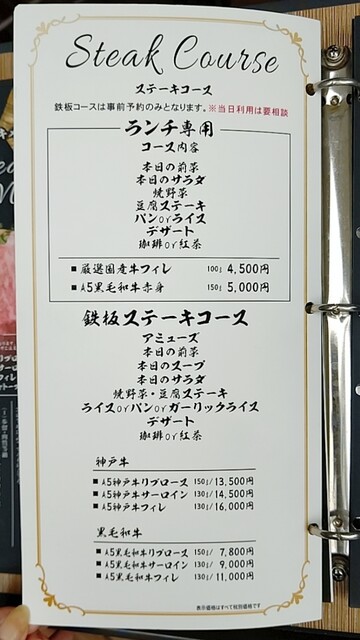 Steak Course
ステーキコース
鉄板コースは事前予約のみとなります。※当日利用は要相談
ランチ専用
コース内容
本日の前菜
本日のサラダ
焼野菜
豆腐ステーキ
パンorライス
デザート
珈琲or紅茶
■ 厳選国産牛フィレ 100g 4,500円
■ A5黒毛和牛赤身 150g 5,000円
鉄板ステーキコース
アミューズ
本日の前菜
本日のスープ
本日のサラダ
焼野菜・豆腐ステーキ
ライスorパンorガーリックライス
デザート
珈琲or紅茶
神戸牛
■ A5神戸牛リブロース 150g/13,500円
■ A5神戸牛サーロイン 130g/14,500円
■ A5神戸牛フィレ 130g/16,000円
黒毛和牛
■ A5黒毛和牛リブロース 150g/ 7,800円
■ A5黒毛和牛サーロイン 130g/ 9,000円
■ A5黒毛和牛フィレ 130g/11,000円
表示価格はすべて税別価格です